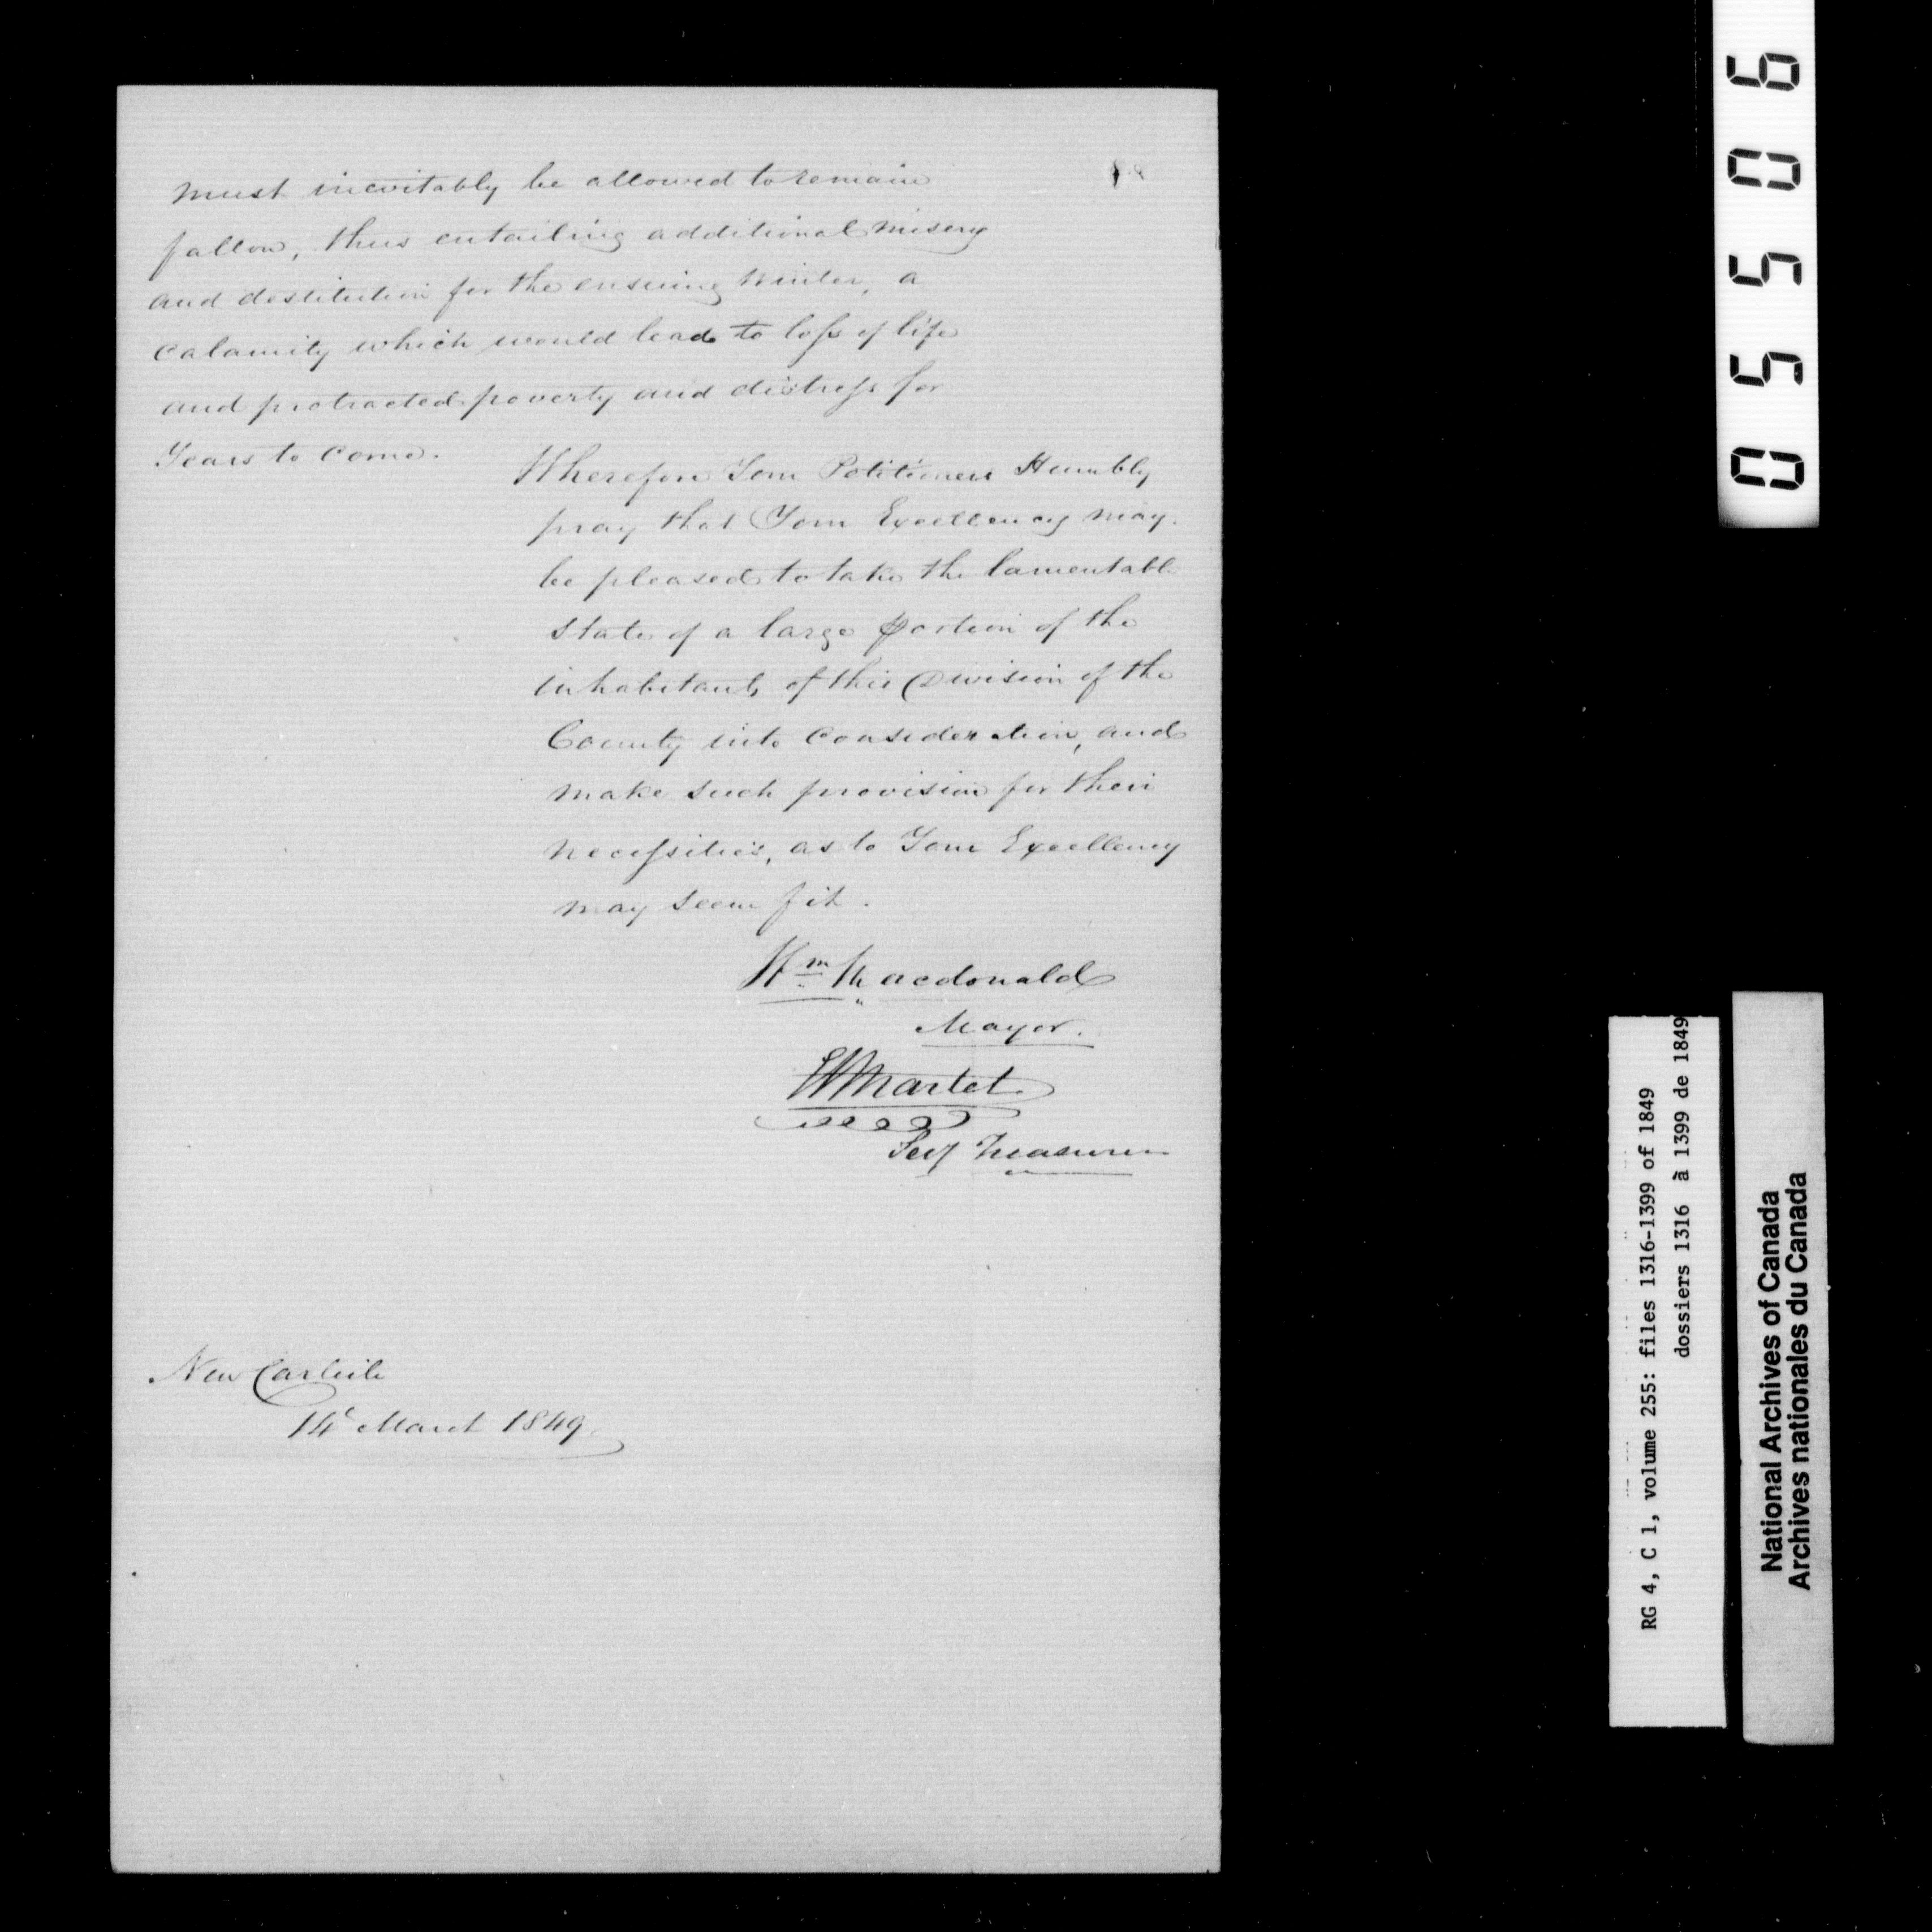 must inevitably be allowed to remain
fallow, thus entailing additional misery
and destitution for the ensuing winter, a
calamity which would lead to loss of life
and protracted poverty and distress for
Years to come.
Wherefore Your Petitioners Humbly
pray that Your Excellency may
be pleased to take the lamentable
state of a large portion of the
inhabitants of this Division of the
County into consideration, and
make such provision for their
necessities, as to Your Excellency
may seem fit.
Wm Macdonald
Mayor.
Martel
Secy Treasurer
New Carlisle
14t March 1849
05506
RG 4, C 1, volume 255: files 1316-1399 of 1849
dossiers 1316 à 1399 de 1849
National Archives of Canada
Archives nationales du Canada